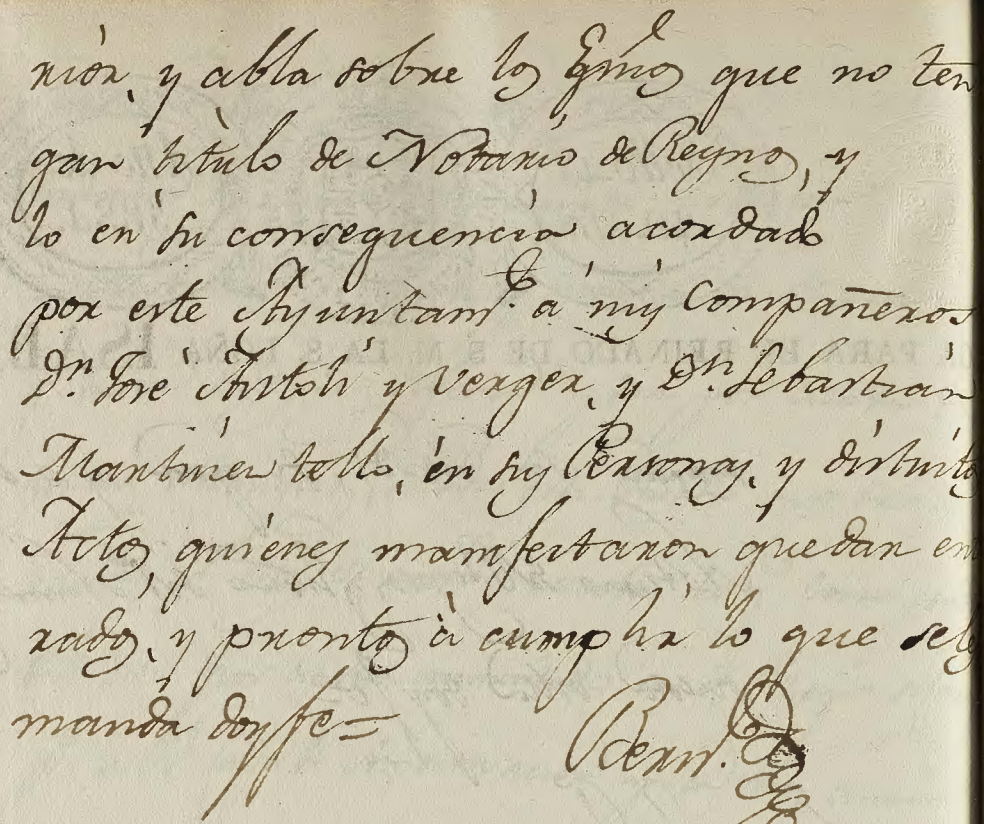 rior, y abla sobre los Esnos que no ten
gan titulo de Notario de Reynos, y
lo en su consequencia acordado
por este Ayuntamto. á mis Compañeros
Dn. José Antoli y Verger, y Dn. Sebastian
Martinez tello, en sus Personas, y distintos
Actos, quienes manifestaron quedar en
rados, y prontos à cumplir lo que seles
manda doy fe =
Bern.